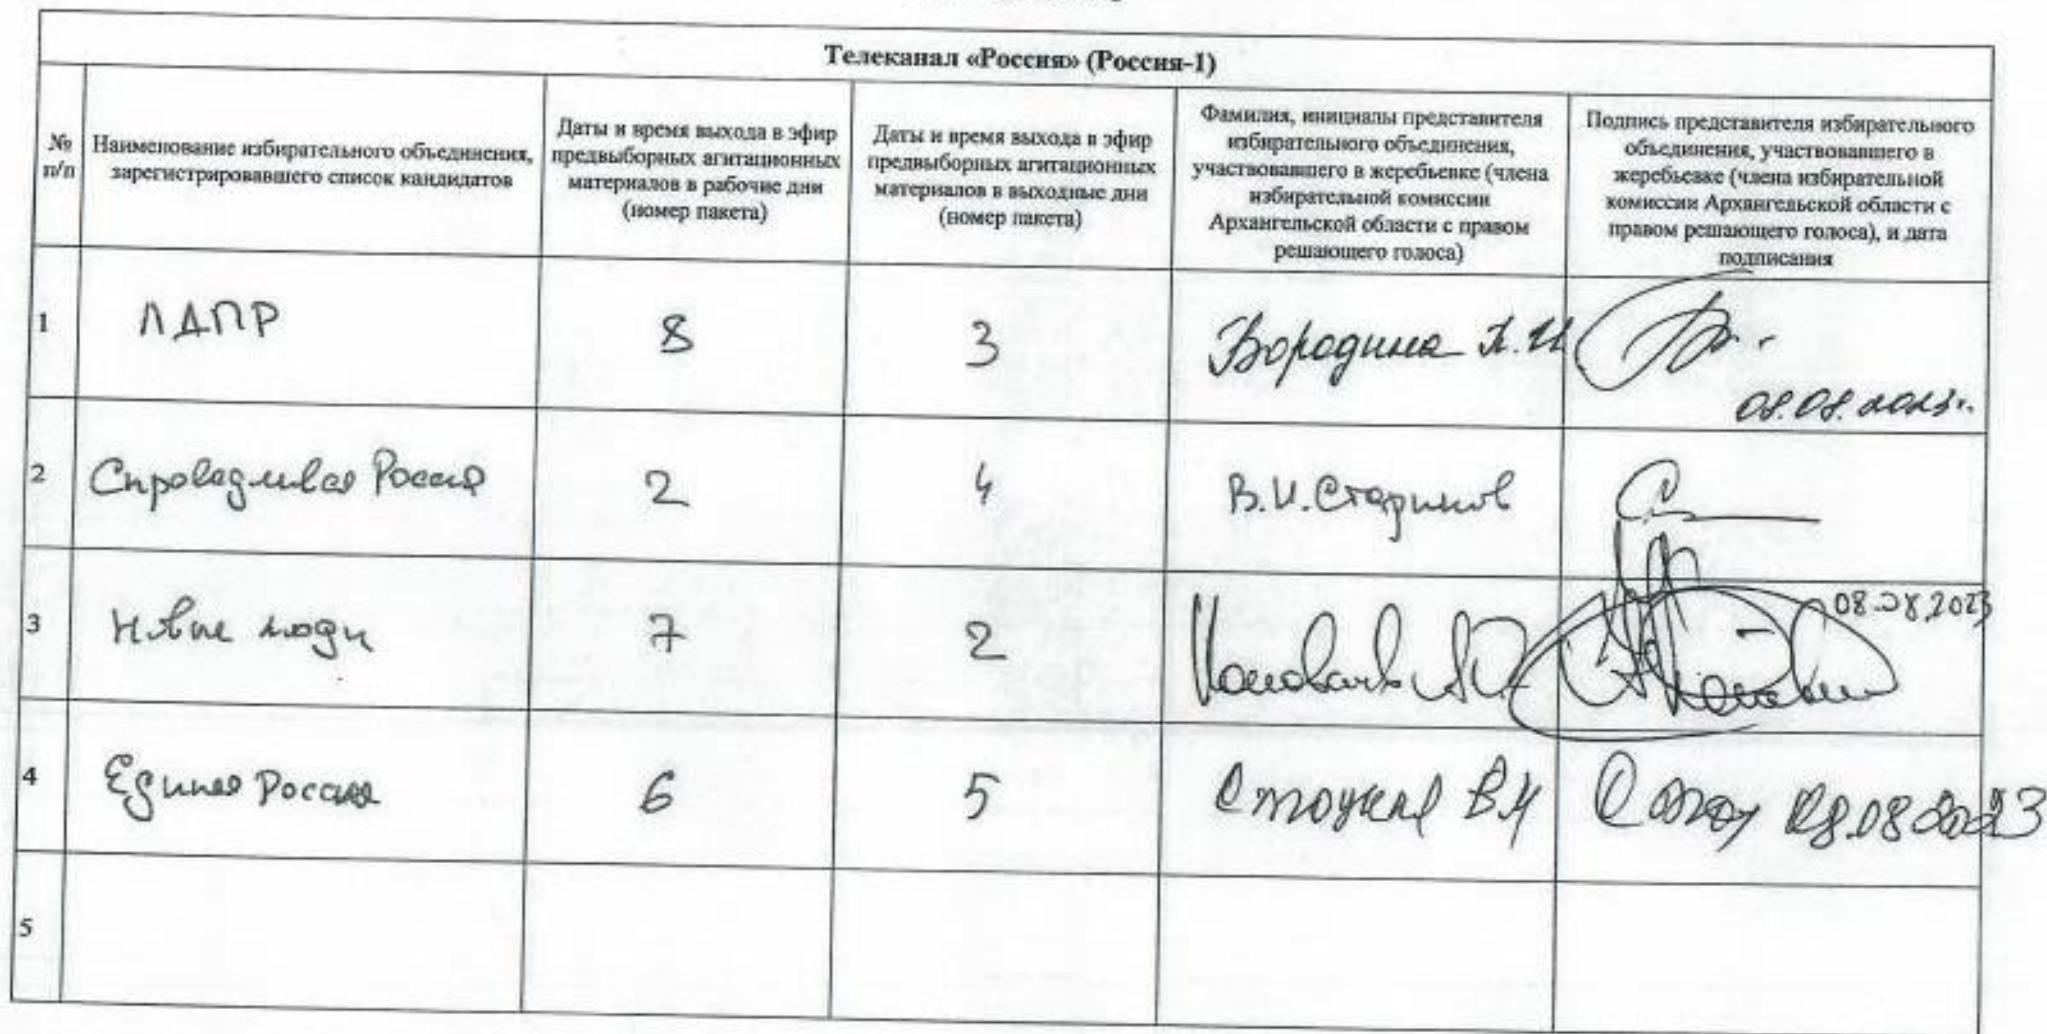 Телеканал «Россия» (Россия-1)
№ п/п
Наименование избирательного объединения,
зарегистрировавшего список кандидатов
Даты и время выхода в эфир
предвыборных агитационных
материалов в рабочие дни
(номер пакета)
Даты и время выхода в эфир
предвыборных агитационных
материалов в выходные дни
(номер пакета)
Фамилия, инициалы представителя
избирательного объединения,
участвовавшего в жеребьевке (члена
избирательной комиссии
Архангельской области с правом
решающего голоса)
Подпись представителя избирательного
объединения, участвовавшего в
жеребьевке (члена избирательной
комиссии Архангельской области с
правом решающего голоса), и дата
подписания
1 ЛДПР 8 3 Бородина
08.08.2023г.
2 Справедливая Россия 2 4 В.И. Стариков
3 Новые люди 7 2
08.08.2023
4 Единая Россия 6 5 08.08.2023
5